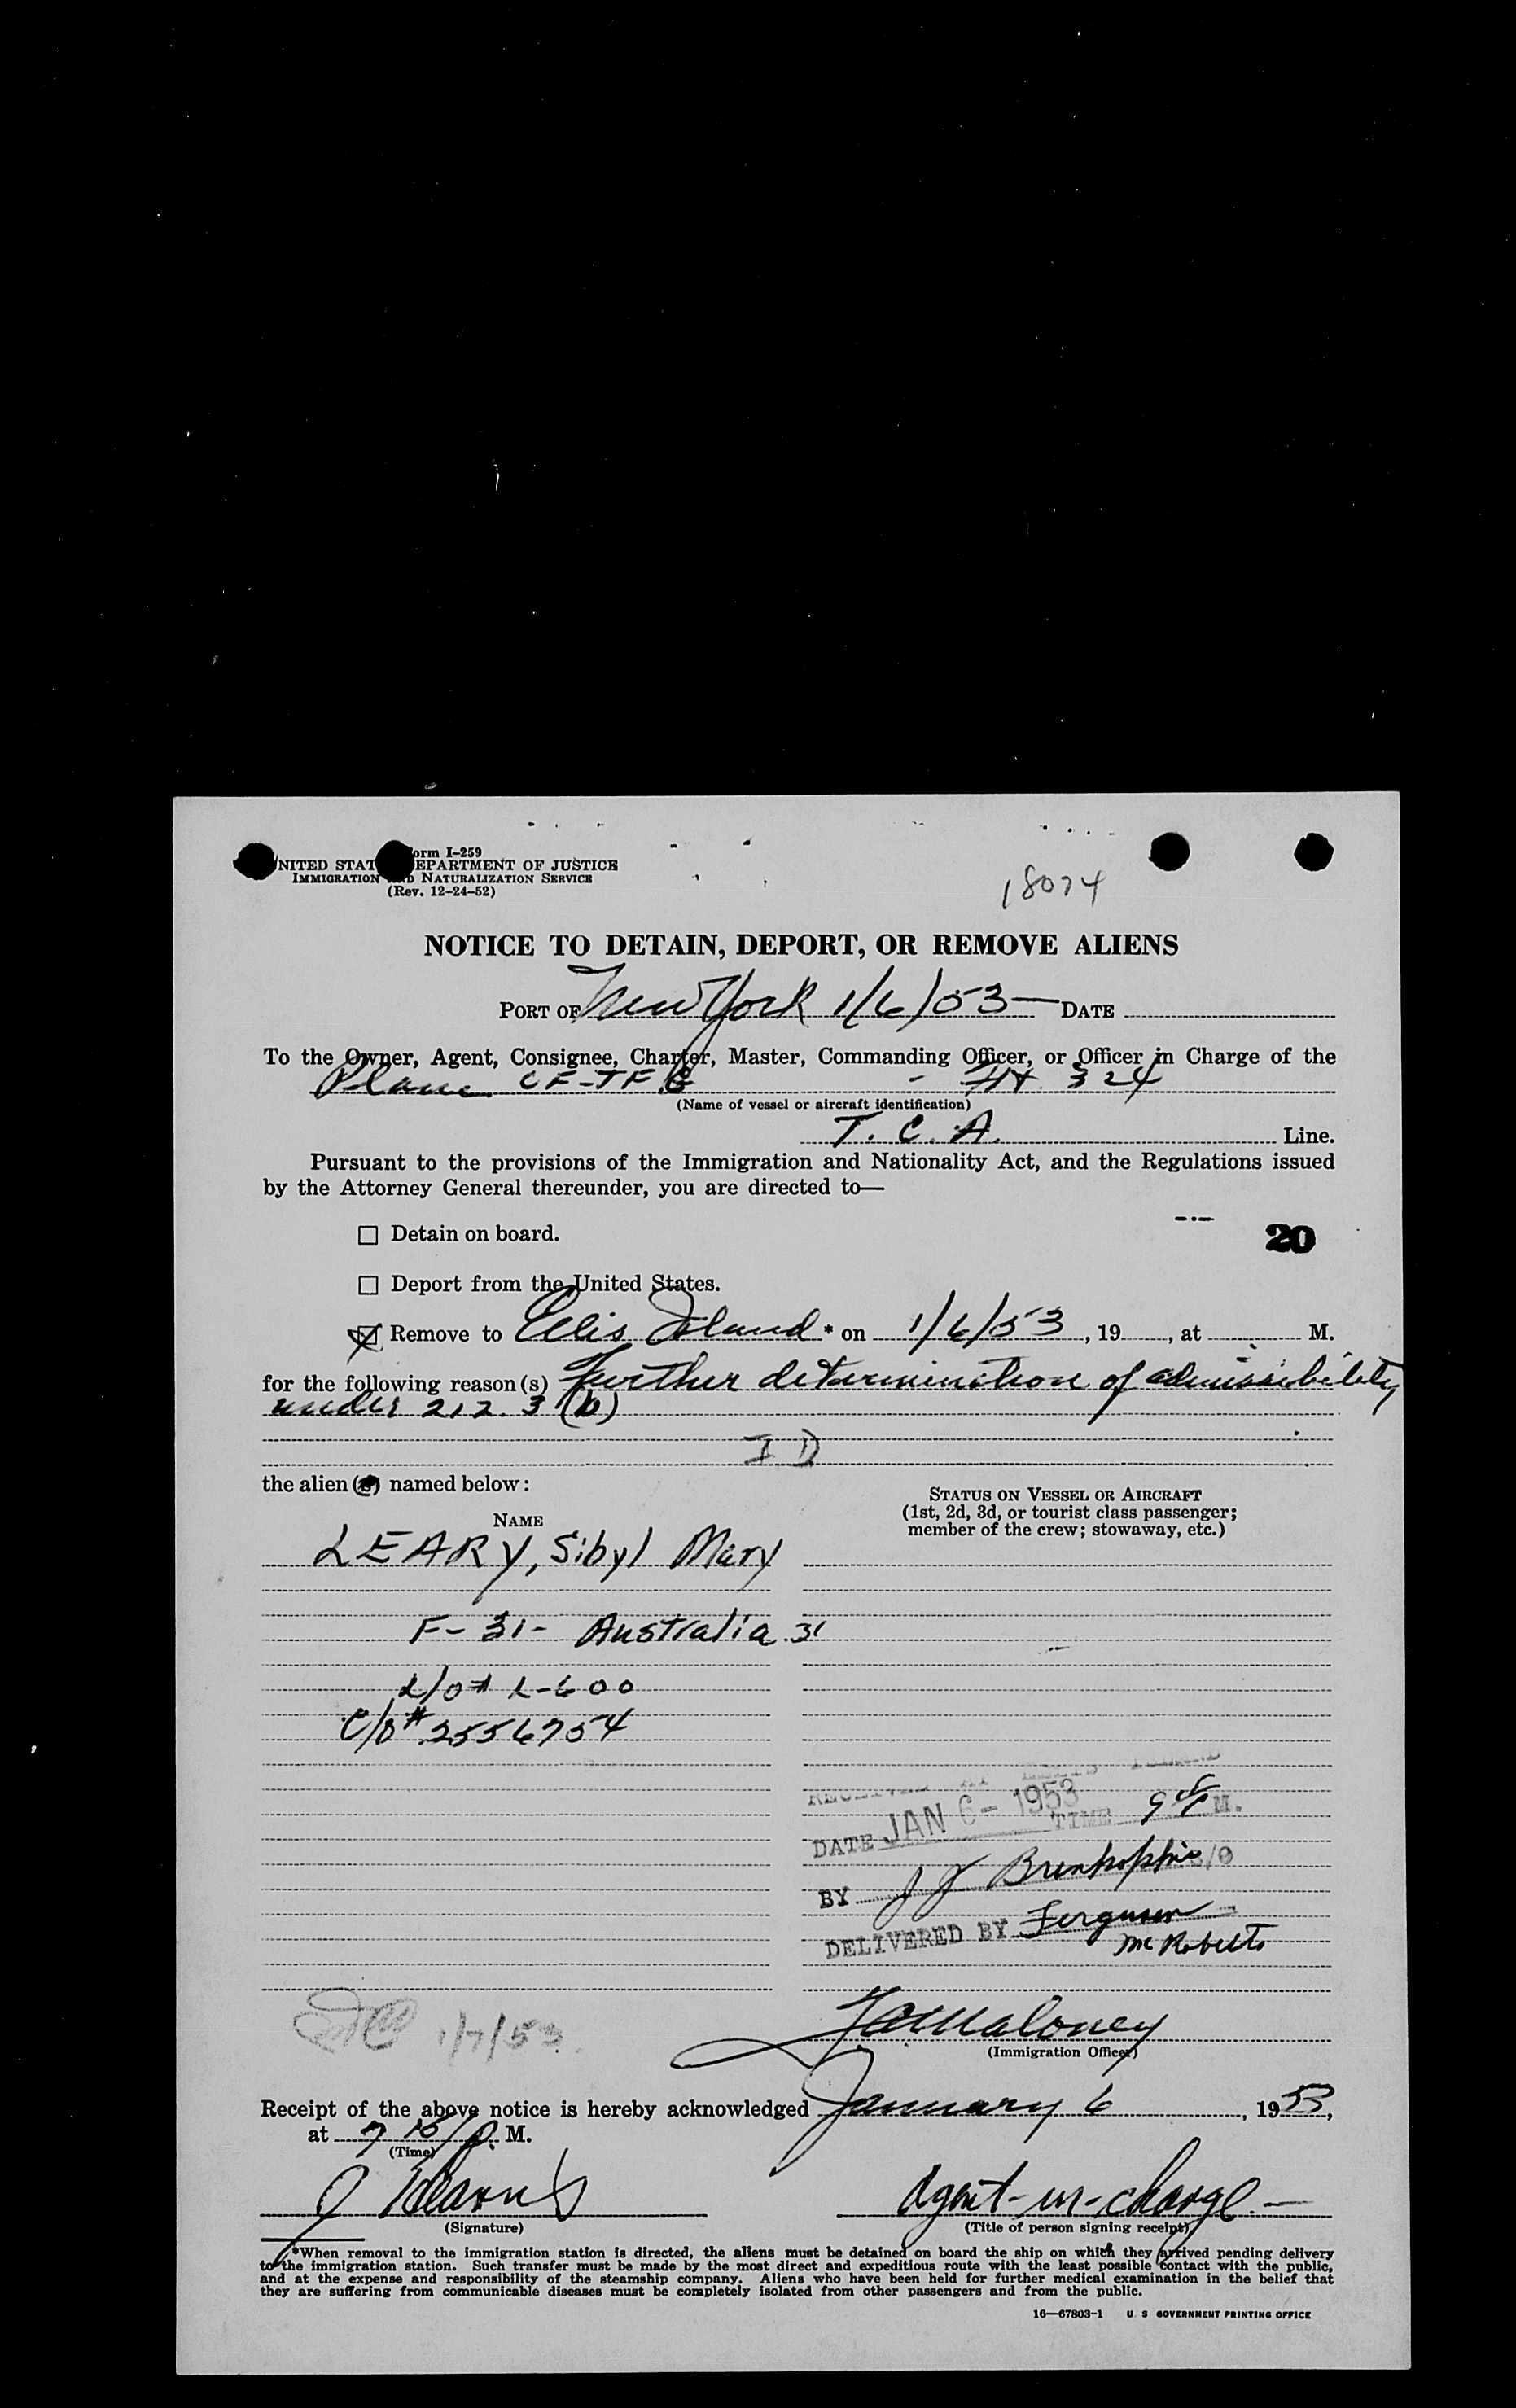 Form I-259
UNITED STATES DEPARTMENT OF JUSTICE
IMMIGRATION AND NATURALIZATION SERVICE
(Rev. 12-24-52)
18074
NOTICE TO DETAIN, DEPORT, OR REMOVE ALIENS
PORT OF New York 1/6/53 — DATE
To the Owner, Agent, Consignee, Charter, Master, Commanding Officer, or Officer in Charge of the
Plane CF-TFG - Flt 324
(Name of vessel or aircraft identification)
T. C. A. Line.
Pursuant to the provisions of the Immigration and Nationality Act, and the Regulations issued
by the Attorney General thereunder, you are directed to—
Detain on board.
20
Deport from the United States.
Remove to Ellis Island * on 1/6/53, 19, at M.
for the following reason(s) further determination of admissibility
under 212.3 (b)
I D
the alien(s) named below:
STATUS ON VESSEL OR AIRCRAFT
(1st, 2d, 3d, or tourist class passenger;
member of the crew; stowaway, etc.)
NAME
LEARY, Sibyl Mary
F- 31- Australia 31
L/O# L-600
C/O# 2556754
RECEIVED AT ELLIS ISLAND
DATE JAN 6 - 1953 TIME 9 M.
BY J J
DELIVERED BY Ferguson
McRoberts
1/7/53
Maloney
(Immigration Officer)
Receipt of the above notice is hereby acknowledged January 6, 1953,
at 7 15/p. M.
(Time)
J Kearns
Agent-in-charge. —
(Signature)
(Title of person signing receipt)
*When removal to the immigration station is directed, the aliens must be detained on board the ship on which they arrived pending delivery
to the immigration station. Such transfer must be made by the most direct and expeditious route with the least possible contact with the public,
and at the expense and responsibility of the steamship company. Aliens who have been held for further medical examination in the belief that
they are suffering from communicable diseases must be completely isolated from other passengers and from the public.
16—67803-1 U. S. GOVERNMENT PRINTING OFFICE